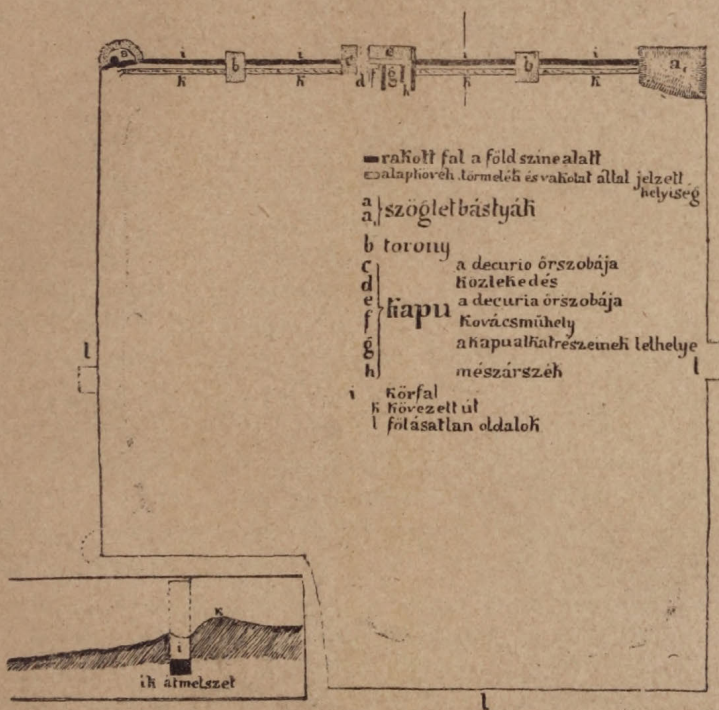 a i b i c e i b i a,
k k d f g h k k k
rakott fal a föld szine alatt
alapkövek, törmelék és vakolat által jelzett
helyiség
a
a, szögletbástyák
b torony
c a decurio őrszobája
d közlekedés
e a decuria őrszobája
kapu
f kovácsműhely
g a kapu alkatrészeinek lelhelye
h mészárszék
i körfal
k kövezett út
l fölásatlan oldalok
l
l
k
i
ik átmetszet
l